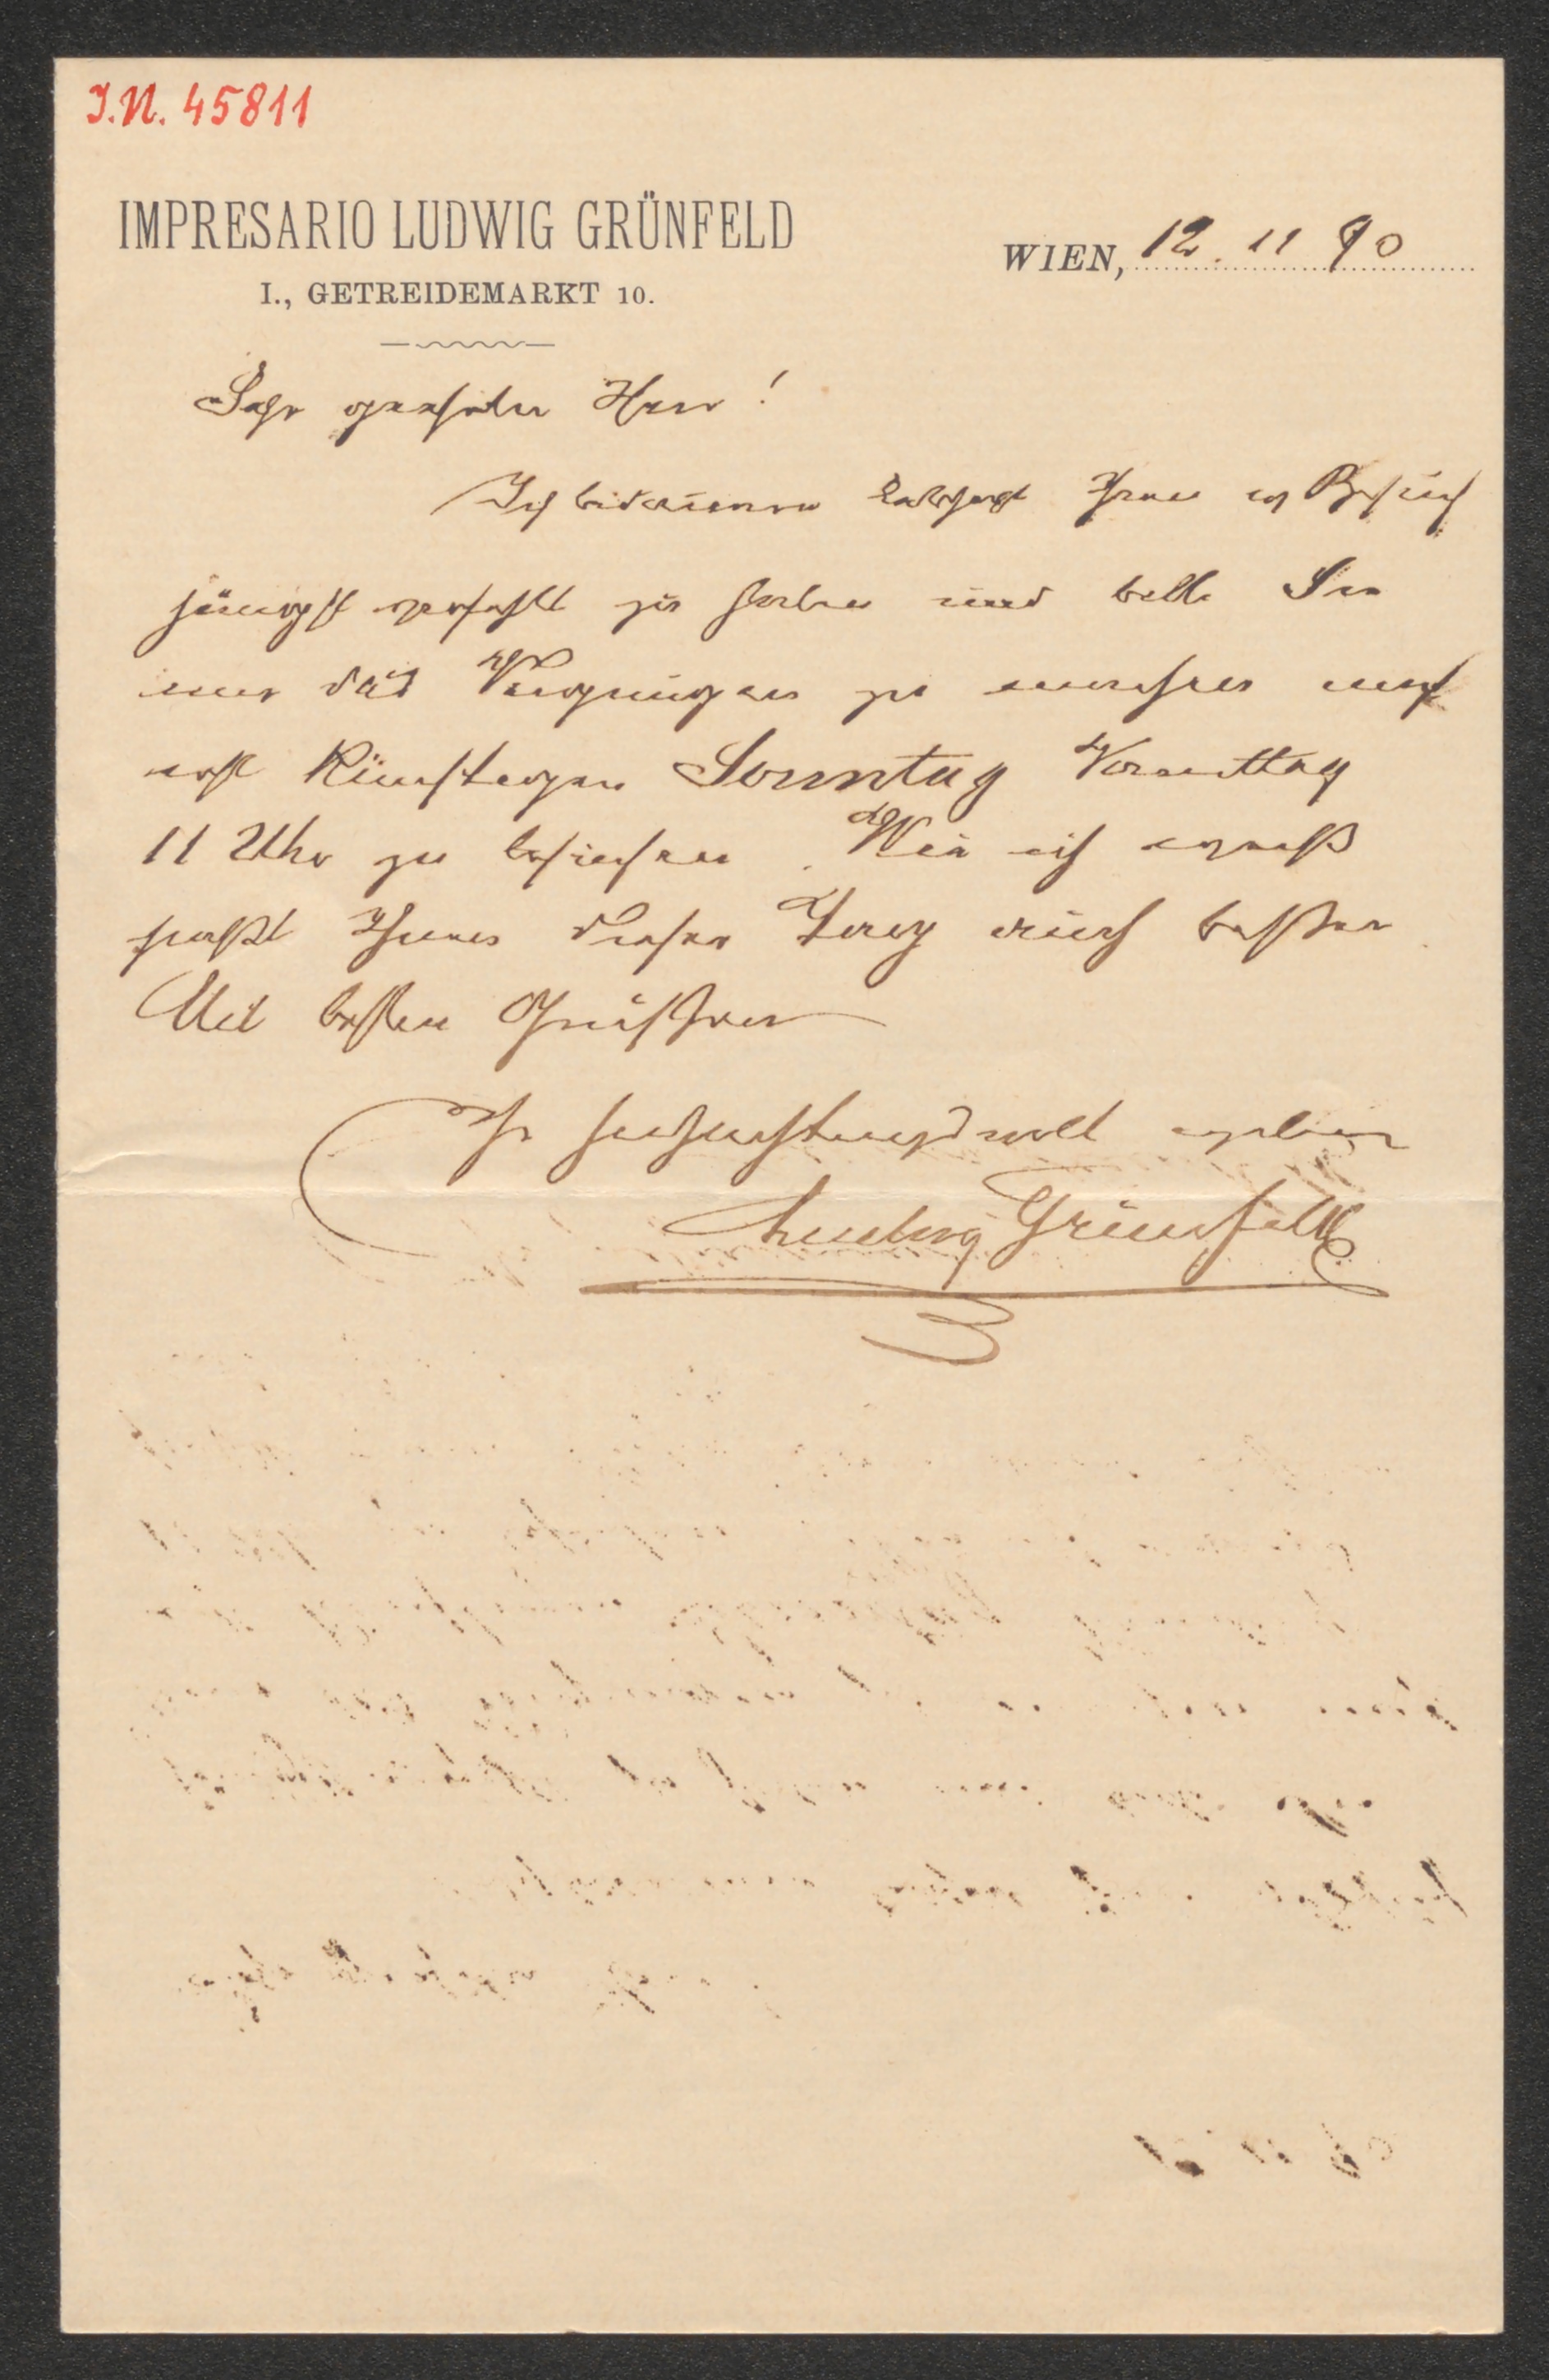 J.N. 45811
IMPRESARIO LUDWIG GRÜNFELD
WIEN, 12. 11 90
I., GETREIDEMARKT 10.
Sehr geehrter Herr!
Ich bedauere lebhaft Ihren Besuch
jüngst verfehlt zu haben und bitte Sie
mir das Vergnügen zu machen mich
künftigen Sonntag Vormittag
11 Uhr zu besuchen. Wie ich weiß
paßt Ihnen dieser Tag auch besser.
Mit besten Grüßen
Ihr hochachtungsvoll ergebener
Ludwig Grünfeld